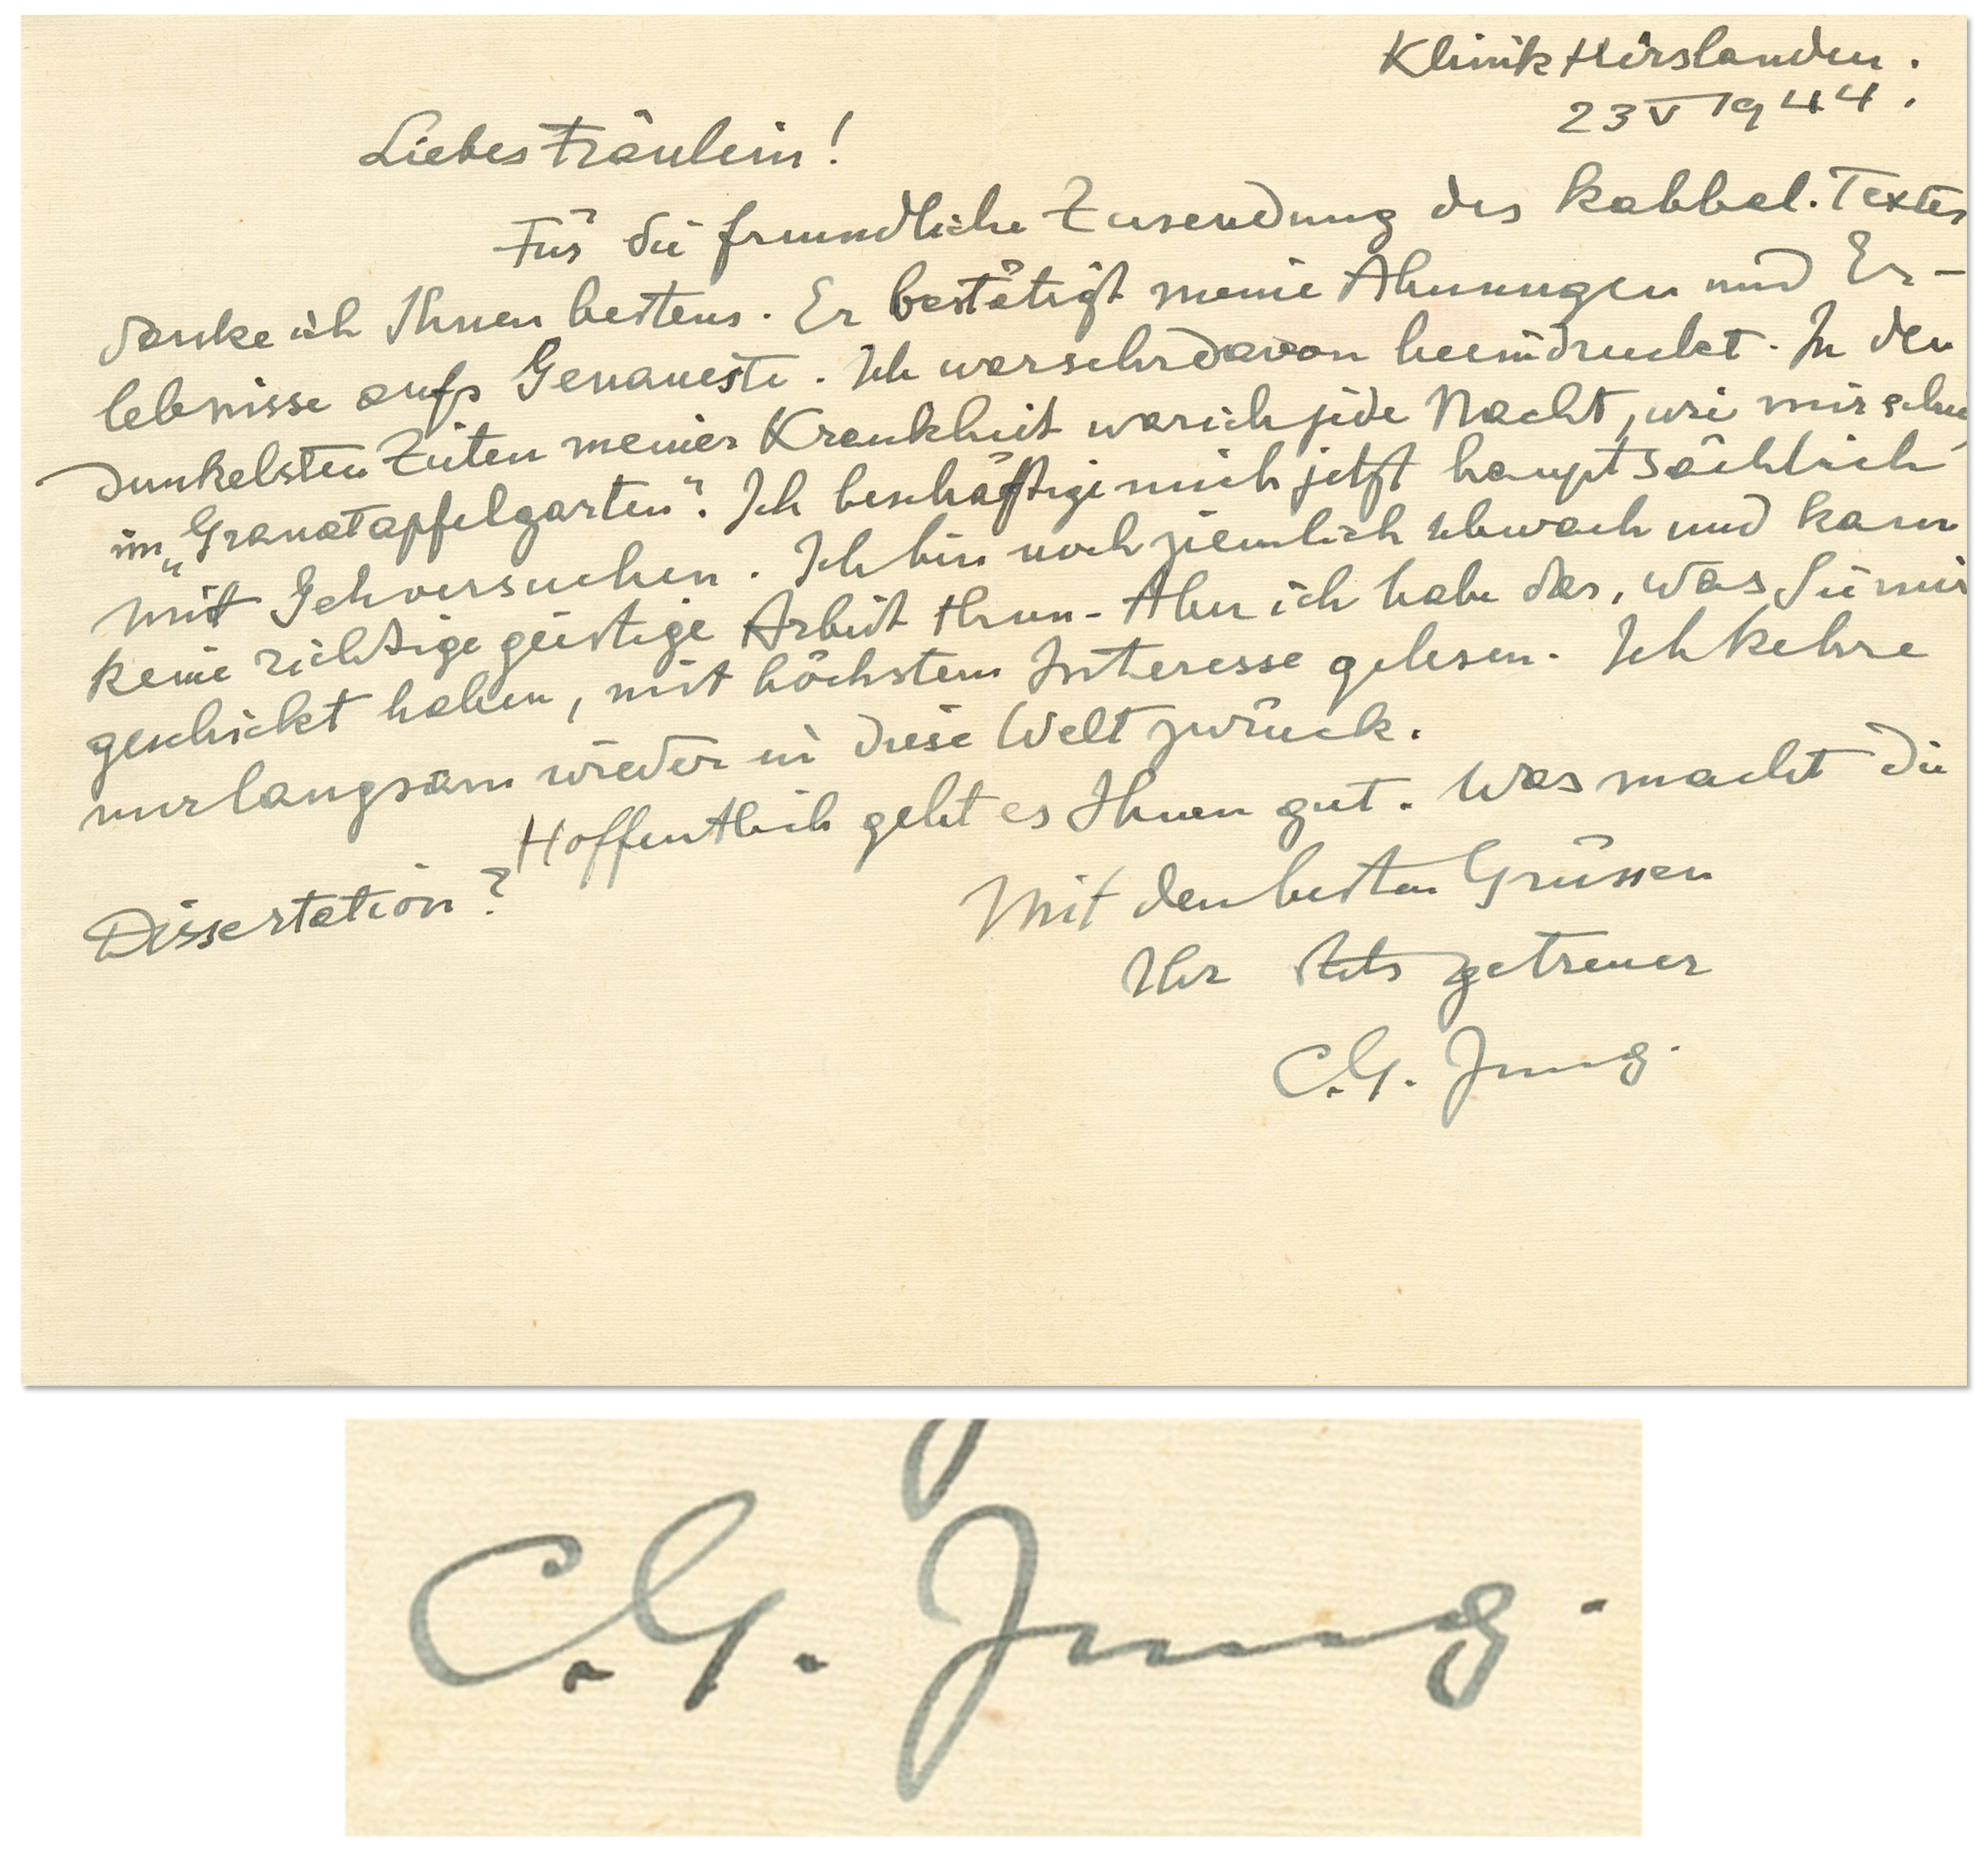 Klinik Hirslanden.
23 V 1944.
Liebes Fräulein!
Für die freundliche Zusendung des kabbal. Textes
danke ich Ihnen bestens. Er bestätigt meine Ahnungen und Er-
lebnisse aufs Genaueste. Ich war sehr davon beeindruckt. In den
dunkelsten Zeiten meiner Krankheit war ich jede Nacht, wie mir schien,
im „Granatapfelgarten". Ich beschäftige mich jetzt hauptsächlich
mit Gehversuchen. Ich bin noch ziemlich schwach und kann
keine richtige geistige Arbeit thun - Aber ich habe das, was Sie mir
geschickt haben, mit höchstem Interesse gelesen. Ich kehre
nur langsam wieder in diese Welt zurück.
Hoffentlich geht es Ihnen gut. Was macht die
Dissertation?
Mit den besten Grüssen
Ihr stets getreuer
C.G. Jung.
C.G. Jung.